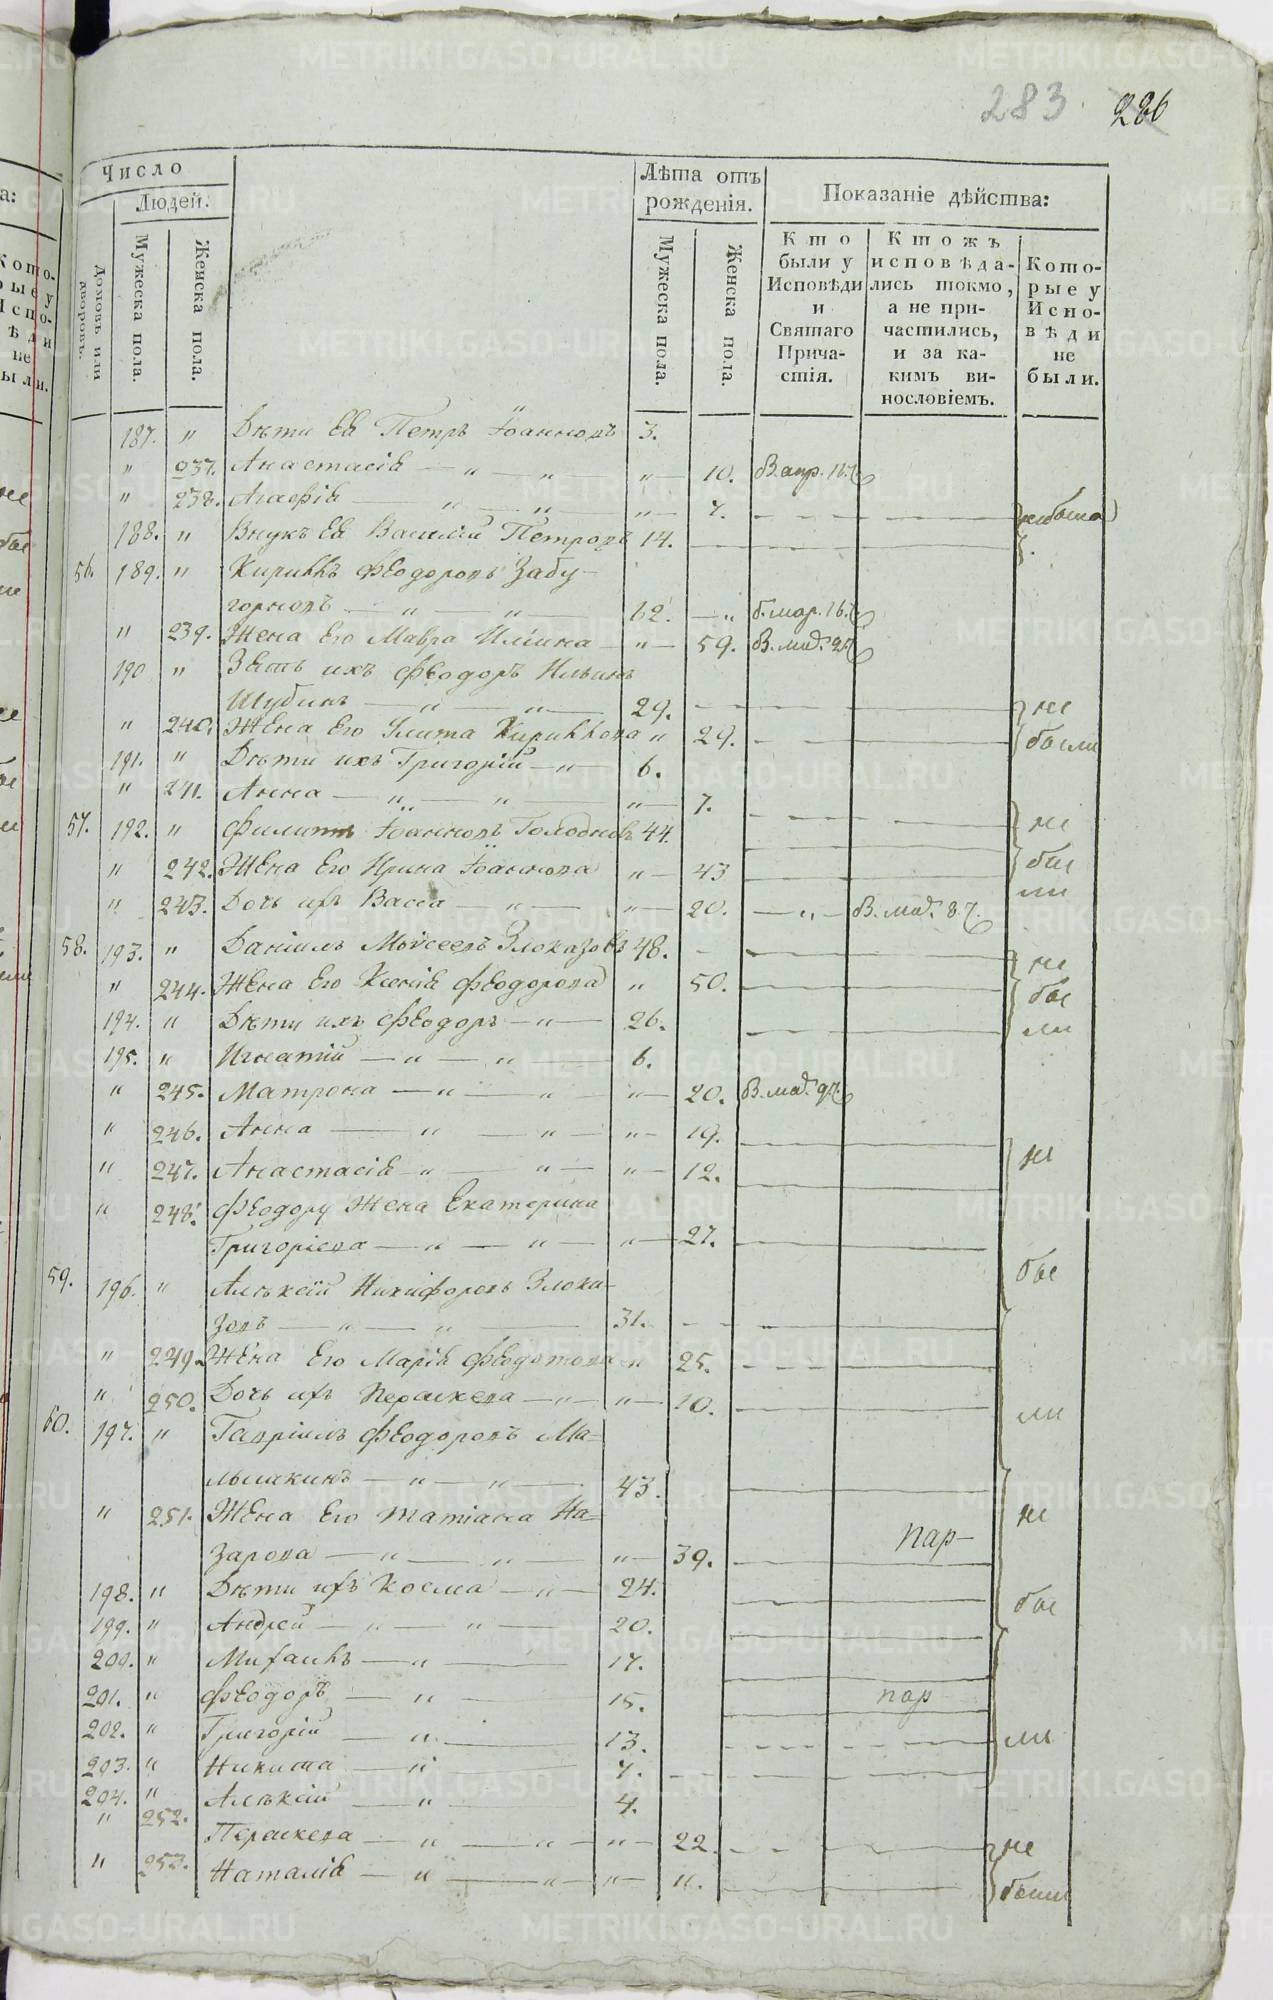 283 286
Число
Людей.
Домовъ или дворовъ.
Мужеска пола.
Женска пола.
Лѣта отъ рожденія.
Мужеска пола.
Женска пола.
Показаніе дѣйства:
Кто были у Исповѣди и Святаго Причастія.
Ктожъ исповѣдались токмо, а не причастились, и за какимъ винословіемъ.
Которые у Исповѣди не были.
187. " Дѣти Ея Петръ Іоанновъ 3.
" 237. Анастасія — " — " " — 10. В. апр. 16.
" 238. Агафія — " — " " — 7. не были
188. " Внукъ Ея Василій Петровъ 14.
56. 189. " Кириллъ Феодоровъ Забу-
горновъ — " — " — 62. — " б. мар. 16.
" 239. Жена Его Мавра Ильина " — 59. В. ма.
190 " Зять ихъ Феодоръ Ильинъ
Шубинъ — " — " — 29. не
" 240. Жена Его Улита Кириллова " 29. были
191. " Дѣти ихъ Григорій — " — 6.
" 241. Анна — " — " — " — 7.
57. 192. " Филиппъ Іоанновъ Голодновъ 44. не
" 242. Жена Его Ирина Іоаннова " — 43 бы
" 243. Дочь ихъ Васса — " — " — 20. — " — В. ма. 8. ли
58. 193. " Даніилъ Моѵсеевъ Злоказовъ 48. не
" 244. Жена Его Ксенія Феодорова " 50. бы
194. " Дѣти ихъ Феодоръ — " — 26. ли
195. " Игнатій — " — " — 6.
" 245. Матрона — " — " — " — 20. В. ма. 9.
" 246. Анна — " — " — " — 19.
" 247. Анастасія — " — " — " — 12. не
" 248. Феодору Жена Екатерина
Григоріева — " — " — " — 27.
59. 196. " Алексій Никифоровъ Злока- бы
зовъ — " — " — 31.
" 249. Жена Его Марія Феодотова " 25.
" 250. Дочь ихъ Параскева — " — " — 10. ли
60. 197. " Гавріилъ Феодоровъ Ма-
лышкинъ — " — " — 43.
" 251. Жена Его Татіана На- не
зарова — " — " — " — 39. пар-
198. " Дѣти ихъ Косма — " — 24. бы
199. " Андрей — " — " — 20.
200. " Михаилъ — " — 17.
201. " Феодоръ — " — 15. пар
202. " Григорій — " — 13. ли
203. " Никита — " — 7.
204. " Алексій — " — 4.
" 252. Параскева — " — " — " — 22. не
" 253. Наталія — " — " — " — 11. были
METRIKI.GASO-URAL.RU